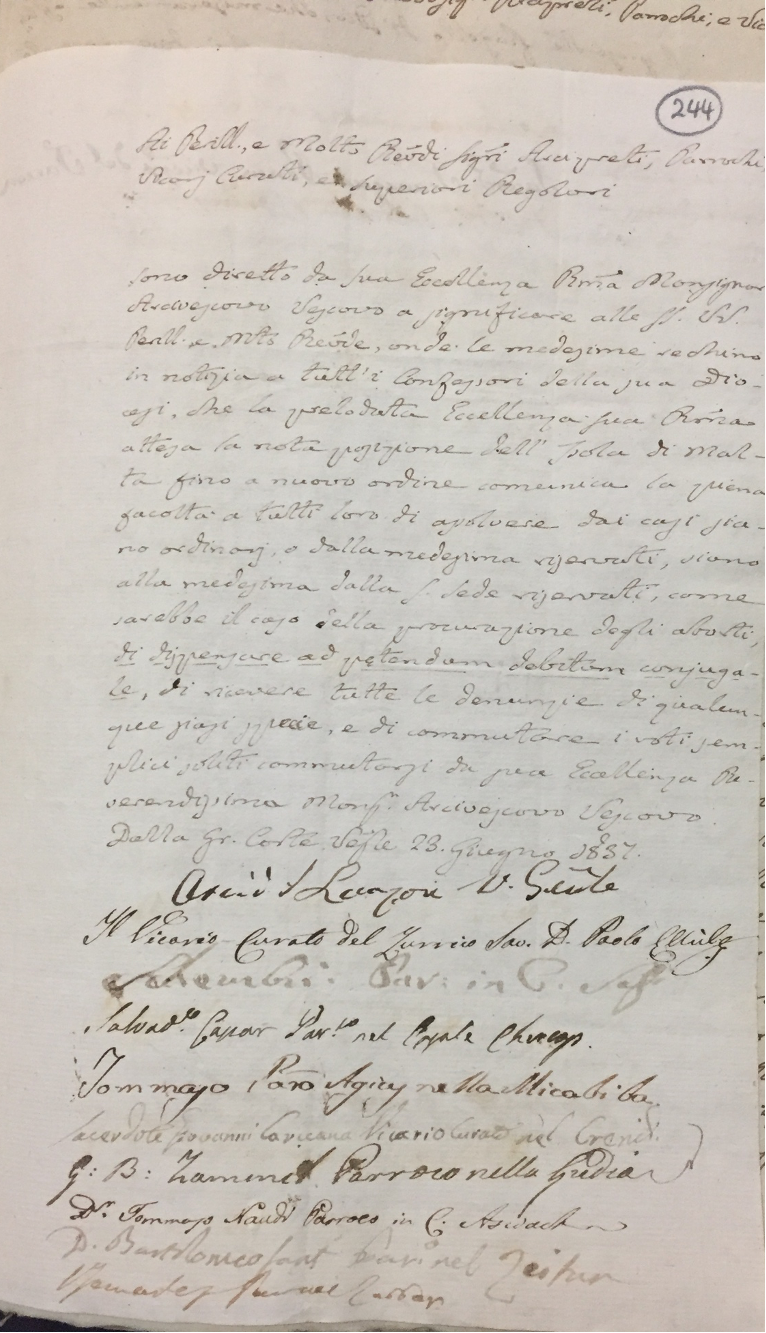 Arcipreti, Parrochi, e Vic
244
Ai Perill., e Molto Revdi Sigri Arcipreti, Parrochi,
Vicarj Curati, e Superiori Regolari
Sono diretto da sua Eccellenza Rma Monsignor
Arcivescovo Vescovo a significare alle SS. VV.
Perill. e Mto Revde, onde le medesime rechino
in notizia a tutt'i Confessori della sua Dio-
cesi, che la prelodata Eccellenza sua Rma
attesa la nota posizione dell' Isola di Mal-
ta fino a nuovo ordine comunica la piena
facoltà a tutti loro di assolvere dai casi sia-
no ordinarj, o dalla medesima riservati, siano
alla medesima dalla S. Sede riservati, come
sarebbe il caso della procurazione degli aborti,
di dispensare ad petendum debitum conjuga-
le, di ricevere tutte le denunzie di qualun-
que siasi specie, e di commutare i voti sem-
plici soliti commutarsi da sua Eccellenza Re-
verendissima Monsr Arcivescovo Vescovo.
Dalla Gr. Corte Vesle 23. Giugno 1837.
V. Genle
Il Vicario Curato del Zurrico Sac. D. Paolo
Par: in C. Safi
Salvadre Cassar Parco nel Casale Chircop.
Tommaso Paro Agius nella Micabiba
Sacerdote Giovanni Caruana Vicario Curato nel Crendi
G: B: Zammit Parroco nella Gudia
Dr Tommaso Naudi Parroco in C. Asciach
D. Bartolomeo Sant Paro nel Zeitun